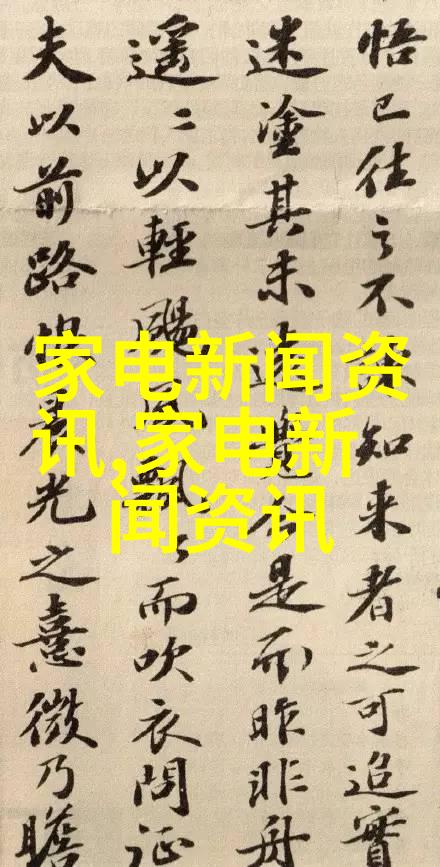 悟已往之不知来者之可追實
迷塗其未遠覺今是而昨非舟
遥〻以輕颺風飄〻而吹衣問征
夫以前路恨晨光之熹微乃瞻
家电新闻资
讯,家电新
闻资讯